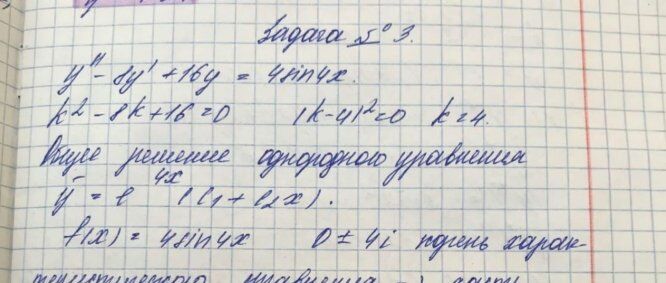 Задача № 3.
y'' - 8y' + 16y = 4sin4x.
k² - 8k + 16 = 0 (k-4)² = 0 k = 4.
Общее решение однородного уравнения
y̅ = e^4x (C₁ + C₂x).
f(x) = 4sin4x 0 ± 4i корень харак-
теристического уравнения =>